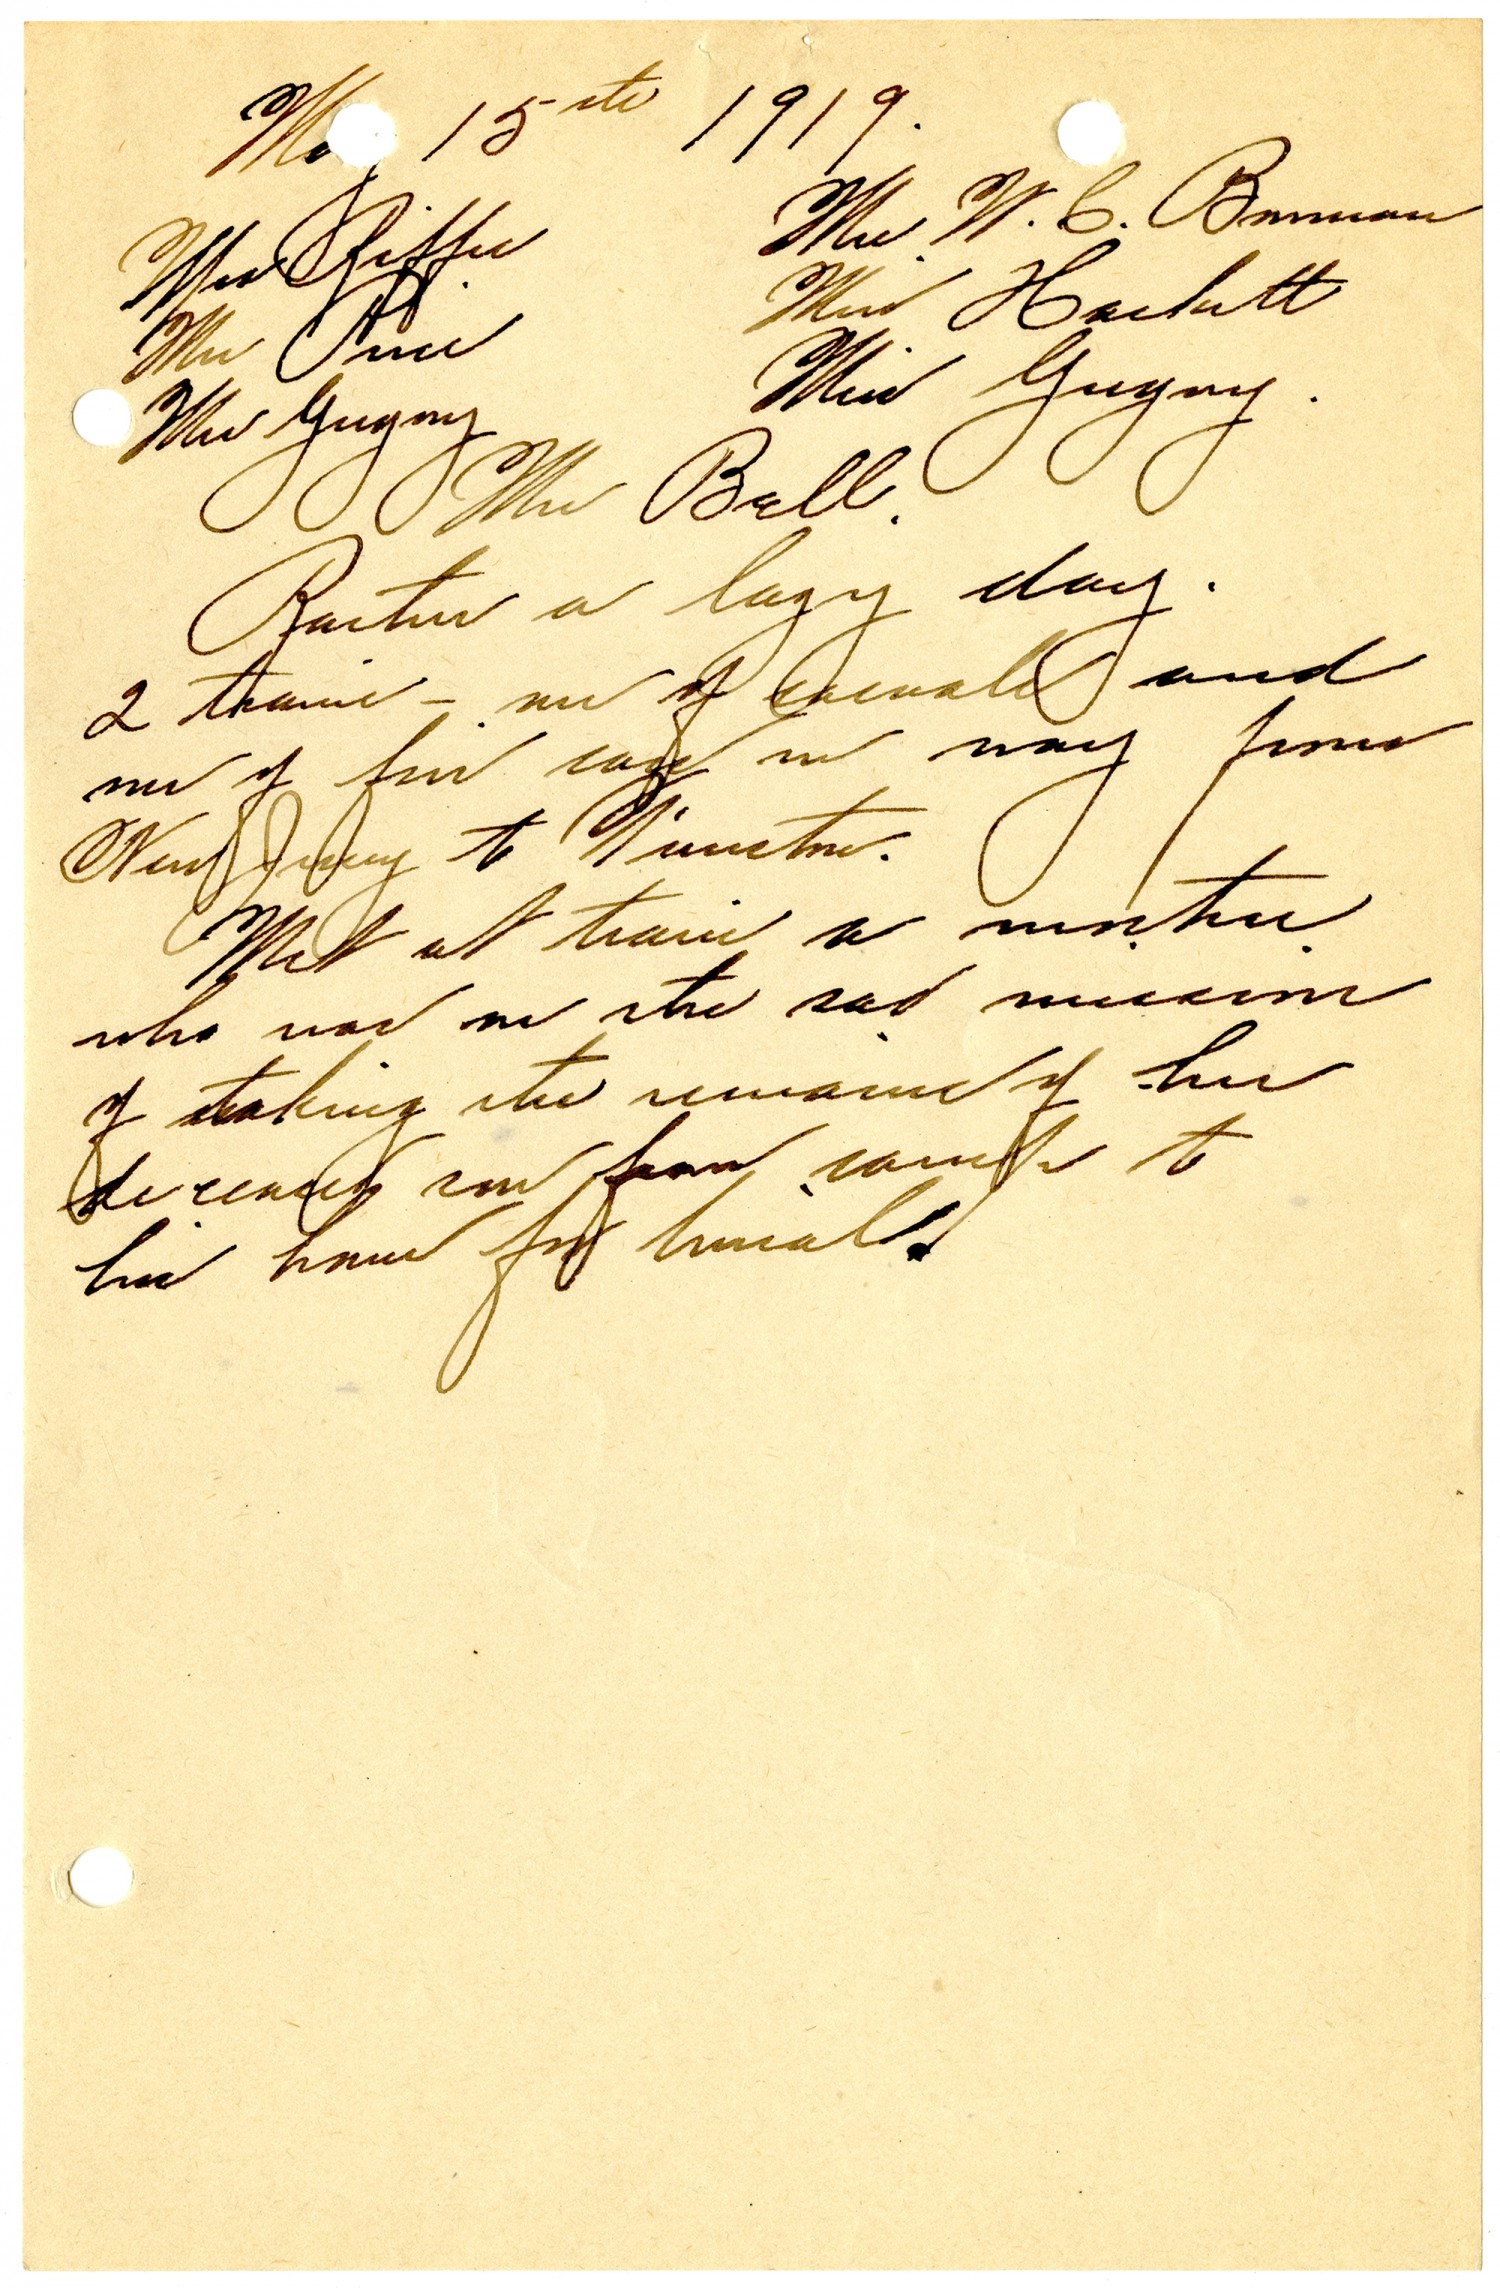 May 15th 1919.
Mrs W. C. Borman
Mrs Riffe
Miss Hackett
Mrs Price
Miss Gregory.
Mrs Gregory
Mrs Ball.
Rather a lazy day.
2 trains - one of casuals and
one of five cars on way from
New Jersey to Funston.
Met at train a mother
who was on the sad mission
of taking the remains of her
deceased son from camp to
his home for burial.